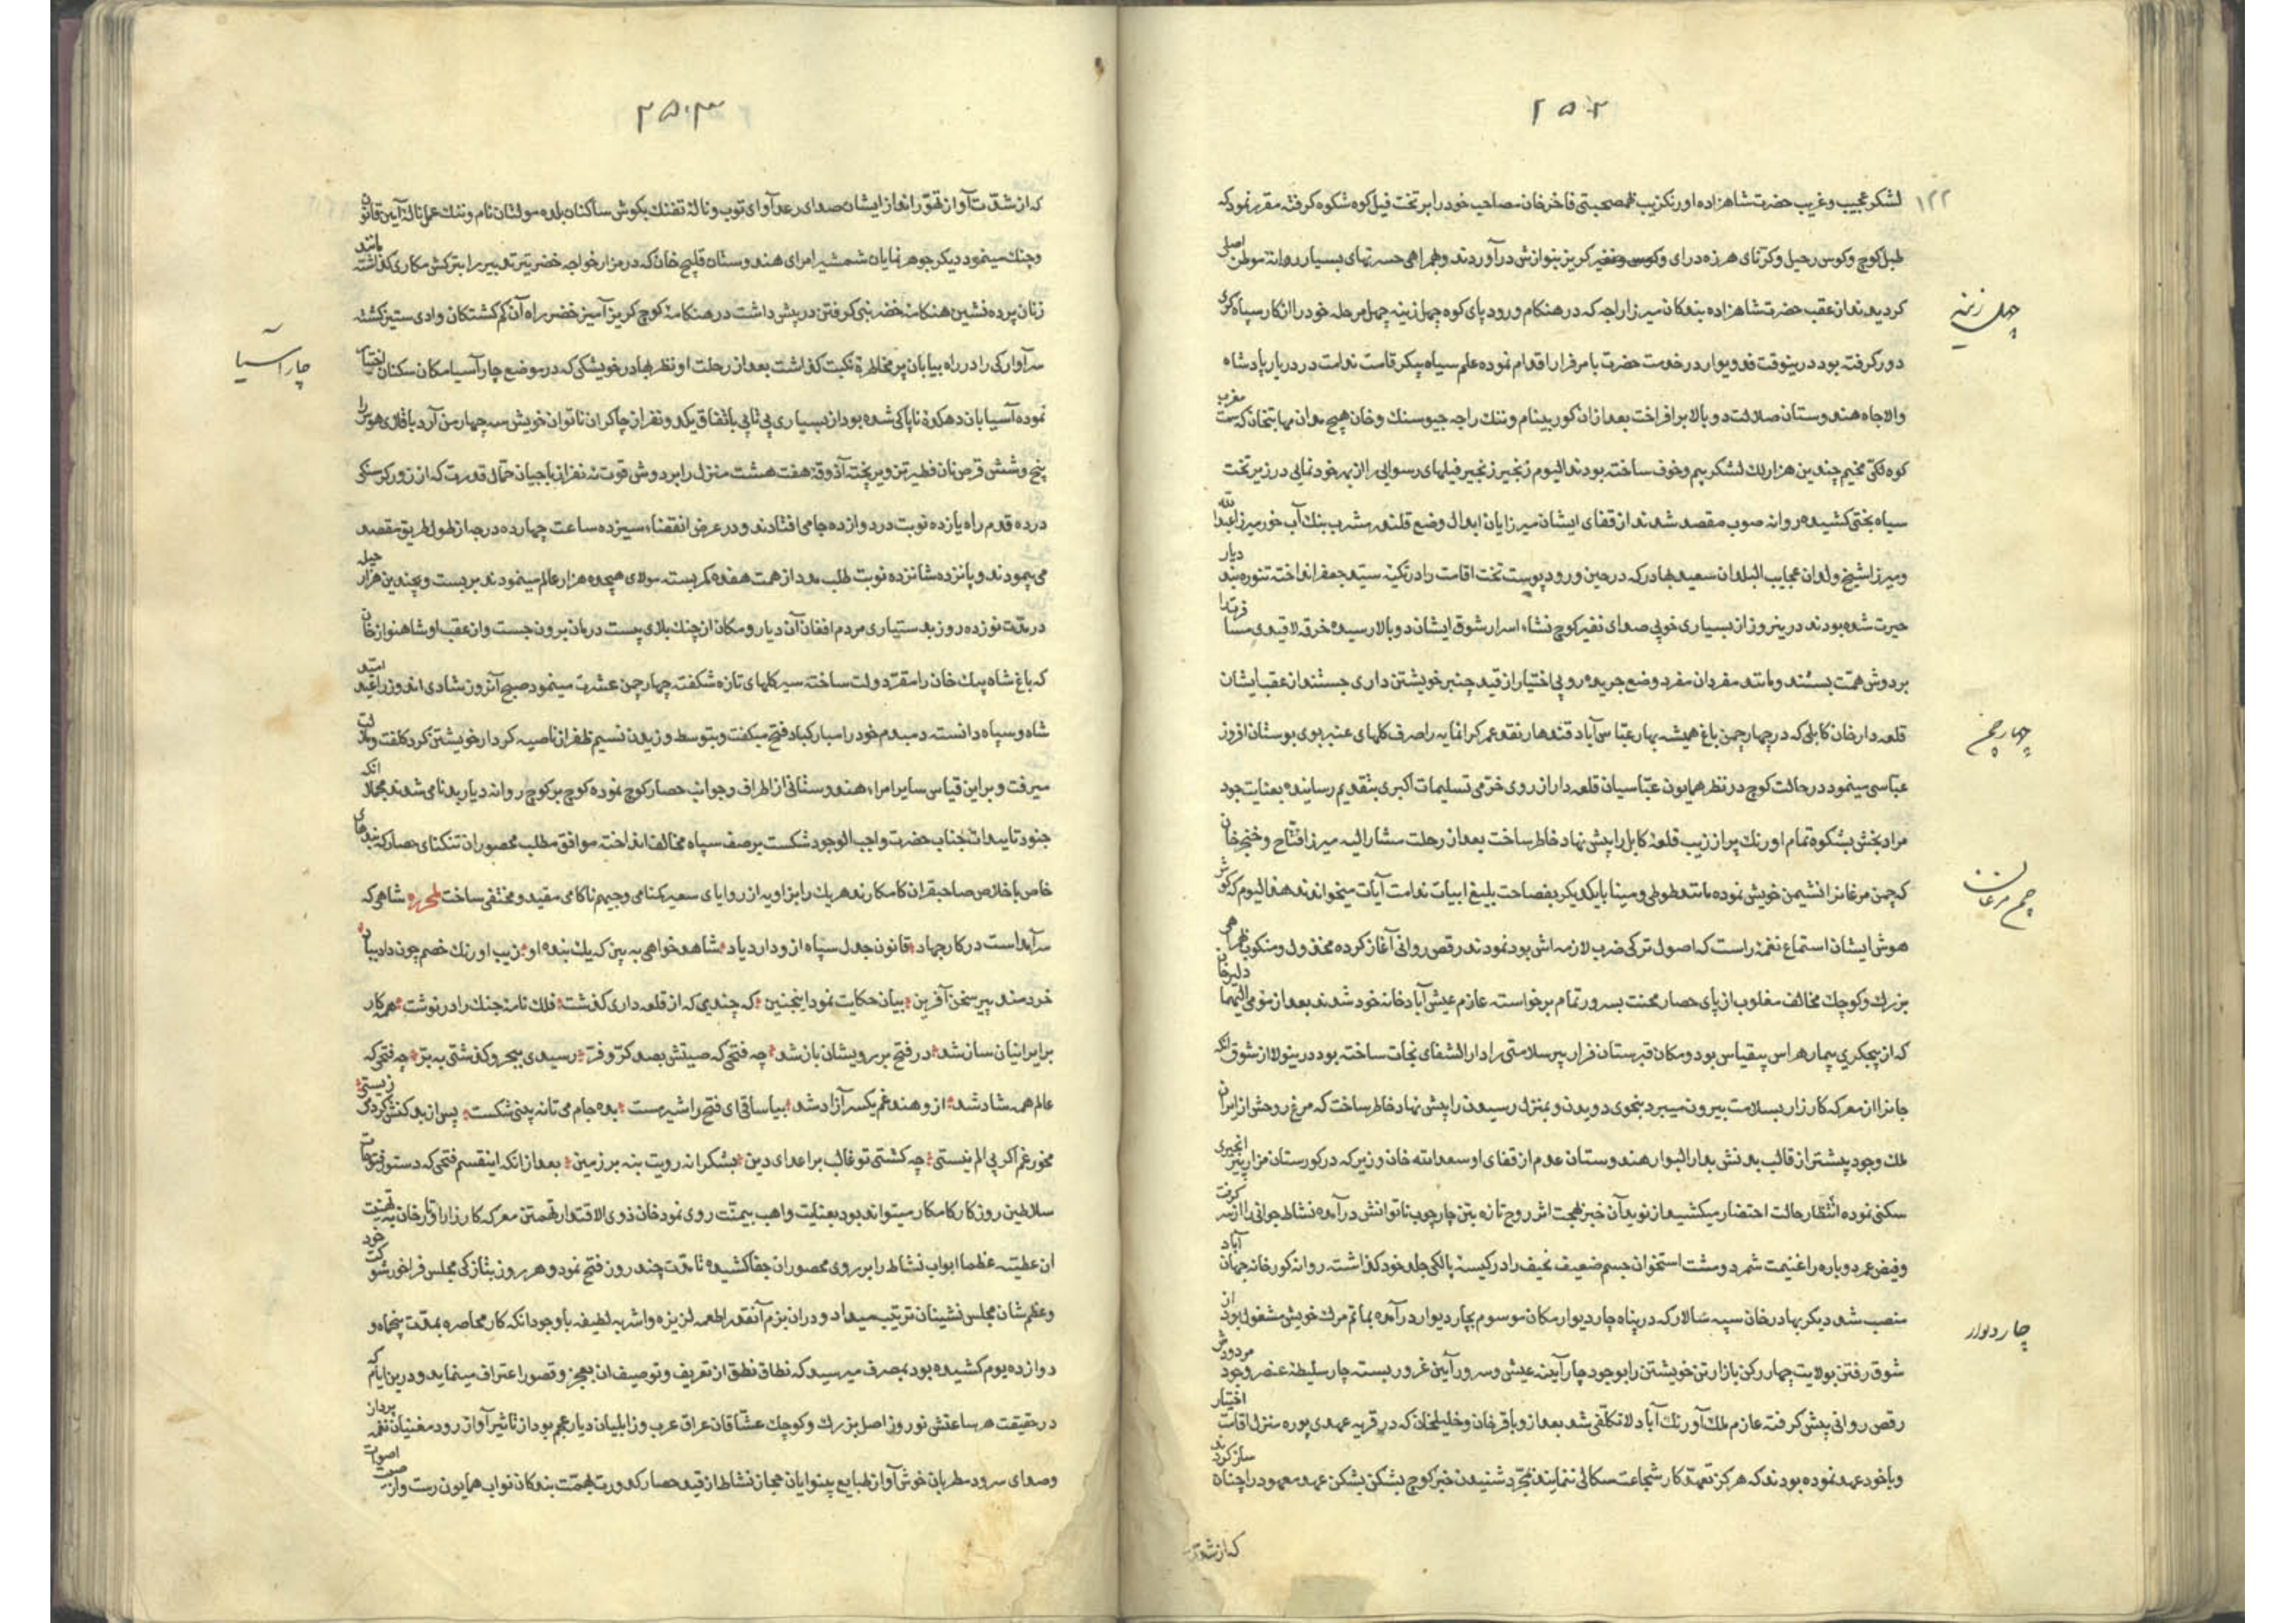 ۲۵۰۲
۱۲۲
لشکر عجیب و غریب حضرت شاهزاده اورنکزیب همصحبتی فاخرخان مصاحب خود را بر تخت فیل کوه شکوه کرفته مقرر نمود که
طبل کوچ و کوس رحیل و کرنای هرزه درای و کوس و نفیر کریز بنوازش درآوردند و همراهی حسرتهای بسیار روانهٔ موطن اصلی
کردیدند از عقب حضرت شاهزاده بندکان میرزا راجه که در هنکام ورود پای کوه چهل زینه چهل مرحله خود را از کار سپاه کری
چهل زینه
دور کرفته بود درینوقت فدویوار در خدمت حضرت بامر فرار اقدام نموده علم سیاه پیکر قامت ندامت در دربار پادشاه
والاجاه هندوستان صلالت دوبالا برافراخت بعد ازان کور بینام و ننک راجه جیوسنک و خان هیچ مدان مهابتخان که سمت مغرب
کوه لکی مخیم چندین هزار لک لشکر بیم و خوف ساخته بودند الیوم زنجیر زنجیر فیلهای رسوایی را از بهر خودنمایی در زیر تخت
سیاه بختی کشیده روانه صوب مقصد شدند از قفای ایشان میرزایان ابدال وضع قلندر مشرب بنک آب خور میرزا عبدالله
و میرزا شیخ ولدان عجایب البلدان سعید بهادر که در حین ورود پوست تخت اقامت را در تکیهٔ سید جعفر انداخته تنوره بند دیار
حیرت شده بودند درینروز از بسیاری خوبی صدای نفیر کوچ نشاء اسرار شوق ایشان دوبالا رسیده خرقه لاقیدی
بر دوش همت بستند و مانند مفردان مفرد وضع جریده رو بی اختیار از قید چنبر خویشتن داری جستند از عقب ایشان
قلعه دارخان کابلی که در چهارچمن باغ همیشه بهار عباسی آباد قندهار نقد عمر کرانمایه را صرف کلهای عنبربوی بوستان افروز
چهارچمن
عباسی مینمود در حالت کوچ در نظر همایون عباسیان قلعه دار از روی خرمی تسلیمات اکبری بتقدیم رسانیده بعنایت جود
مرادبخش بشکوه تمام اورنک پر از زیب قلعهٔ کابل را پیش نهاد خاطر ساخت بعد از رحلت مشارالیه میرزا فتاح و خنجرخان
که چمن مرغانرا نشیمن خویش نموده مانند طوطی و مینا با یکدیکر بفصاحت بلیغ ابیات ندامت آیات میخواندند
چمن مرغان
هوش ایشان استماع نغمهٔ راست که اصول ترکی ضرب لازمه اش بود نمودند رقص روانی آغاز کرده مخذول و منکوب
بزرک و کوچک مخالف مغلوب از پای حصار محنت بسرور تمام برخواسته عازم عیش آباد خانه خود شدند بعد از مومی الیهما دلیرخان
که از بیجکری بیمار هراس بیقیاس بود و مکان قبرستان فرار بیر سلامتی را دارالشفای نجات ساخته بود درینولا از شوق آنکه
جانرا از معرکه کارزار بسلامت بیرون میبرد بنحوی دویدن و بمنزل رسیدن را پیش نهاد خاطر ساخت که مرغ روحش از ایران
ملک وجود پیشتر از قالب بدنش بدارالبوار هندوستان عدم از قفای او سعدالله خان وزیر که در کورستان مزار پیر انجیری
سکنی نموده انتظار حالت احتضار میکشید از نوید آن خبر بهجت اثر روح تازه بتن چارچوب ناتوانش درآمده نشاط جوانی را از سر کرفت
و فیض عمر دوباره را غنیمت شمرد و مشت استخوان جسم ضعیف نحیف را در کیسهٔ پالکی جلد خود کذاشته روانه کورخانه جهان آباد
منصب شد دیکر بهادرخان سپه سالار که در پناه چاردیوار مکان موسوم بچاردیوار درآمده بماتم مرک خویش مشغول بود از
چاردیوار
شوق رفتن بولایت چهار رکن بازار تن خویشتن را بوجود چار آینهٔ عیش و سرور آیین غرور بسته چار سلیطهٔ عنصر وجود مردودش
رقص روانی پیش کرفته عازم ملک اورنک آباد لاتکلفی شد بعد از و باقرخان و خلیلخان که در قریه عهدی پوره منزل اقامت اختیار
و با خود عهد نموده بودند که هرکز تعهد کار شجاعت سکالی ننمایند بمجرد شنیدن خبر کوچ بشکن بشکن عهد معهود را چنان ساز کردند
که از شدت
۲۵۰۳
که از شدت آواز تهور انداز ایشان صدای رعد آوای توپ و نالهٔ تفنک بکوش ساکنان بلده مولتان نام و ننک عمل نالهٔ آیین قانون
و چنک مینمود دیکر جوهر نمایان شمشیر امرای هندوستان قلیج خان که در مزار خواجه خضر تیر تدبیر را بترکش مکاری کذاشته مانند
زنان پرده نشین هنکامهٔ خضر نبی کرفتن در پیش داشت در هنکامهٔ کوچ کریز آمیز خضر راه آن کم کشتکان وادی ستیز کشته
سرآوارکی را در راه بیابان پر مخاطرهٔ نکبت کذاشت بعد از رحلت او نظر بهادر خویشکی که در موضع چارآسیا مکان سکنان اختیار
چارآسیا
نموده آسیابان دهکدهٔ ناپاکی شده بود از بسیاری بی تابی باتفاق یکدو نفر از چاکران ناتوان خویش سه چهار من آرد باقلای هوس را
پنج و شش قرص نان فطیر تن و پر پخته آذوقهٔ هفت هشت منزل را بر دوش قوت نه نفر از باجیان حمال قدرت که از زور کرسنکی
در ده قدم راه یازده نوبت در دوازده جا می افتادند و در عرض انقضاء سیزده ساعت چهارده درجه از طول طریق مقصد
می پیمودند و پانزده شانزده نوبت طلب مدد از همت هفده کمربسته مولای هیجده هزار عالم مینمودند بر بست و بچندین هزار حیله
در مدت نوزده روز بدستیاری مردم افغان آن دیار و مکان از چنک بلای بیست درمان برون جست و از عقب او شاهنوازخان
که باغ شاه بیک خان را مقر دولت ساخته سیر کلهای تازه شکفته چهارچمن عشرت مینمود صبح آنروز شادی اندوز را عید امید
شاه و سپاه دانسته دمبدم خود را مبارکباد فتح میکفت و بتوسط وزیدن نسیم ظفر از ناصیه کردار خویشتن کرد کلفت و ملالت
میرفت و براین قیاس سایر امراء هندوستانی از اطراف و جوانب حصار کوچ نموده کوچ بر کوچ روانه دیار بدنامی شدند مجملا آنکه
جنود تاییدات جناب حضرت واجب الوجود شکست بر صف سپاه مخالف انداخته موافق مطلب محصوران تنکنای حصار که بندهای
خاص با خلاص صاحبقران کامکارند هریک را بزاویه از زوایای سعیر کمنامی و جحیم ناکامی مقید و مختفی ساخت لمحرره شاهی که
سرآمد است در کار جهاد قانون جدل سپاه ازو دارد یاد شاهد خواهی به بین که یک بنده او زیب اورنک خصم چون داد بباد
خردمند پیر سخن آفرین بیان حکایت نمود اینچنین که چندی که از قلعه داری کذشت فلک نامهٔ جنک را در نوشت همه کار
بر ایرانیان ساز شد در فتح بر رویشان باز شد چه فتحی که صیتش بصد کر و فر رسیدی ببحر و کذشتی به بر چه فتحی که
عالم همه شاد شد ازو هند غم یکسر آزاد شد بیا ساقی ای فتح را شیر مست بده جام می تا نه بینی شکست پس از بدکنش کردکی زیستی
مخور غم اکر بی الم نیستی چه کشتی تو غالب بر اعدای دین بشکرانه رویت بنه بر زمین بعد از آنکه اینقسم فتحی که دستور فتوحات
سلاطین روزکار کامکار میتواند بود بعنایت واهب بیمنت روی نمود خان ذوی الاقتدار تهمتن معرکه کارزار اوتارخان به تهنیت
ان عطیه عظما ابواب نشاط را بر روی محصوران جفا کشیده تا مدت چند روز فتح نمود و هر روز بتازکی مجلس فراخور شوکت خود
و عظم شان مجلس نشینان ترتیب میداد و دران بزم آنقدر اطعمه لذیزه و اشربه لطیفه با وجود انکه کار محاصره بمدت پنجاه و
دوازده یوم کشیده بود بمصرف میرسید که نطاق نطق از تعریف و توصیف ان بعجز و قصور اعتراف مینماید و درین ایام که
در حقیقت هر ساعتش نوروز اصل بزرک و کوچک عشاقان عراق عرب و زابلیان دیار عجم بود از تاثیر آواز رود مغنیان نغمه پرداز
و صدای سرود مطربان خوش آواز طبایع بینوایان حجاز نشاط از قید حصار کدورت بهمت بندکان نواب همایون رست